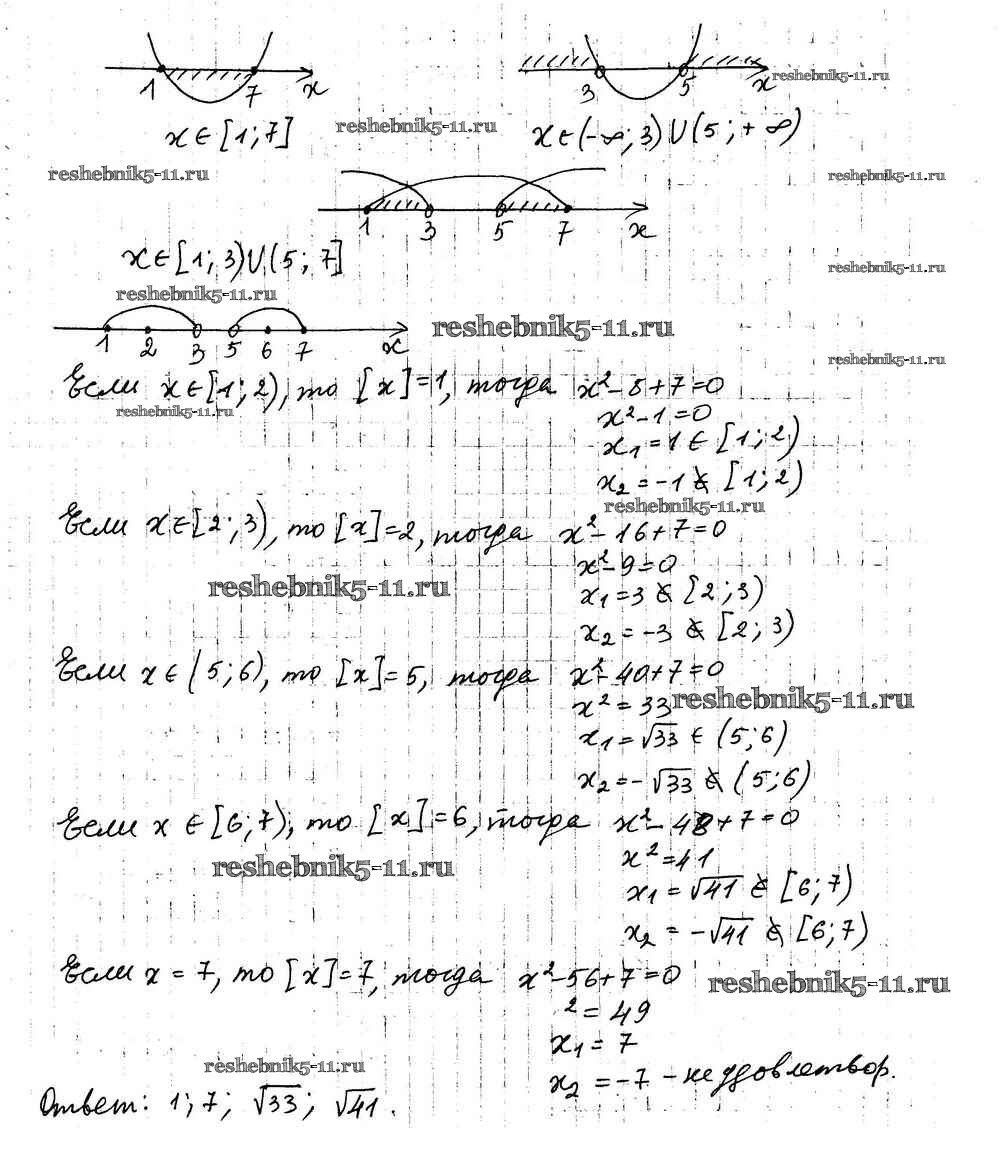 1 7 x 3 5 x
reshebnik5-11.ru
x ∈ [1; 7]
reshebnik5-11.ru
x ∈ (-∞; 3) ∪ (5; +∞)
reshebnik5-11.ru
reshebnik5-11.ru
1 3 5 7 x
x ∈ [1; 3) ∪ (5; 7]
reshebnik5-11.ru
reshebnik5-11.ru
reshebnik5-11.ru
1 2 3 5 6 7 x
reshebnik5-11.ru
Если x ∈ [1; 2), то [x]=1, тогда x² - 8 + 7 = 0
reshebnik5-11.ru
x² - 1 = 0
x₁ = 1 ∈ [1; 2)
x₂ = -1 ∉ [1; 2)
reshebnik5-11.ru
Если x ∈ [2; 3), то [x]=2, тогда x² - 16 + 7 = 0
x² - 9 = 0
reshebnik5-11.ru
x₁ = 3 ∉ [2; 3)
x₂ = -3 ∉ [2; 3)
Если x ∈ (5; 6), то [x]=5, тогда x² - 40 + 7 = 0
x² = 33
reshebnik5-11.ru
x₁ = √33 ∈ (5; 6)
x₂ = -√33 ∉ (5; 6)
Если x ∈ [6; 7), то [x]=6, тогда x² - 48 + 7 = 0
x² = 41
reshebnik5-11.ru
x₁ = √41 ∈ [6; 7)
x₂ = -√41 ∉ [6; 7)
Если x = 7, то [x]=7, тогда x² - 56 + 7 = 0
reshebnik5-11.ru
² = 49
x₁ = 7
reshebnik5-11.ru
x₂ = -7 - не удовлетвор.
Ответ: 1; 7; √33; √41.